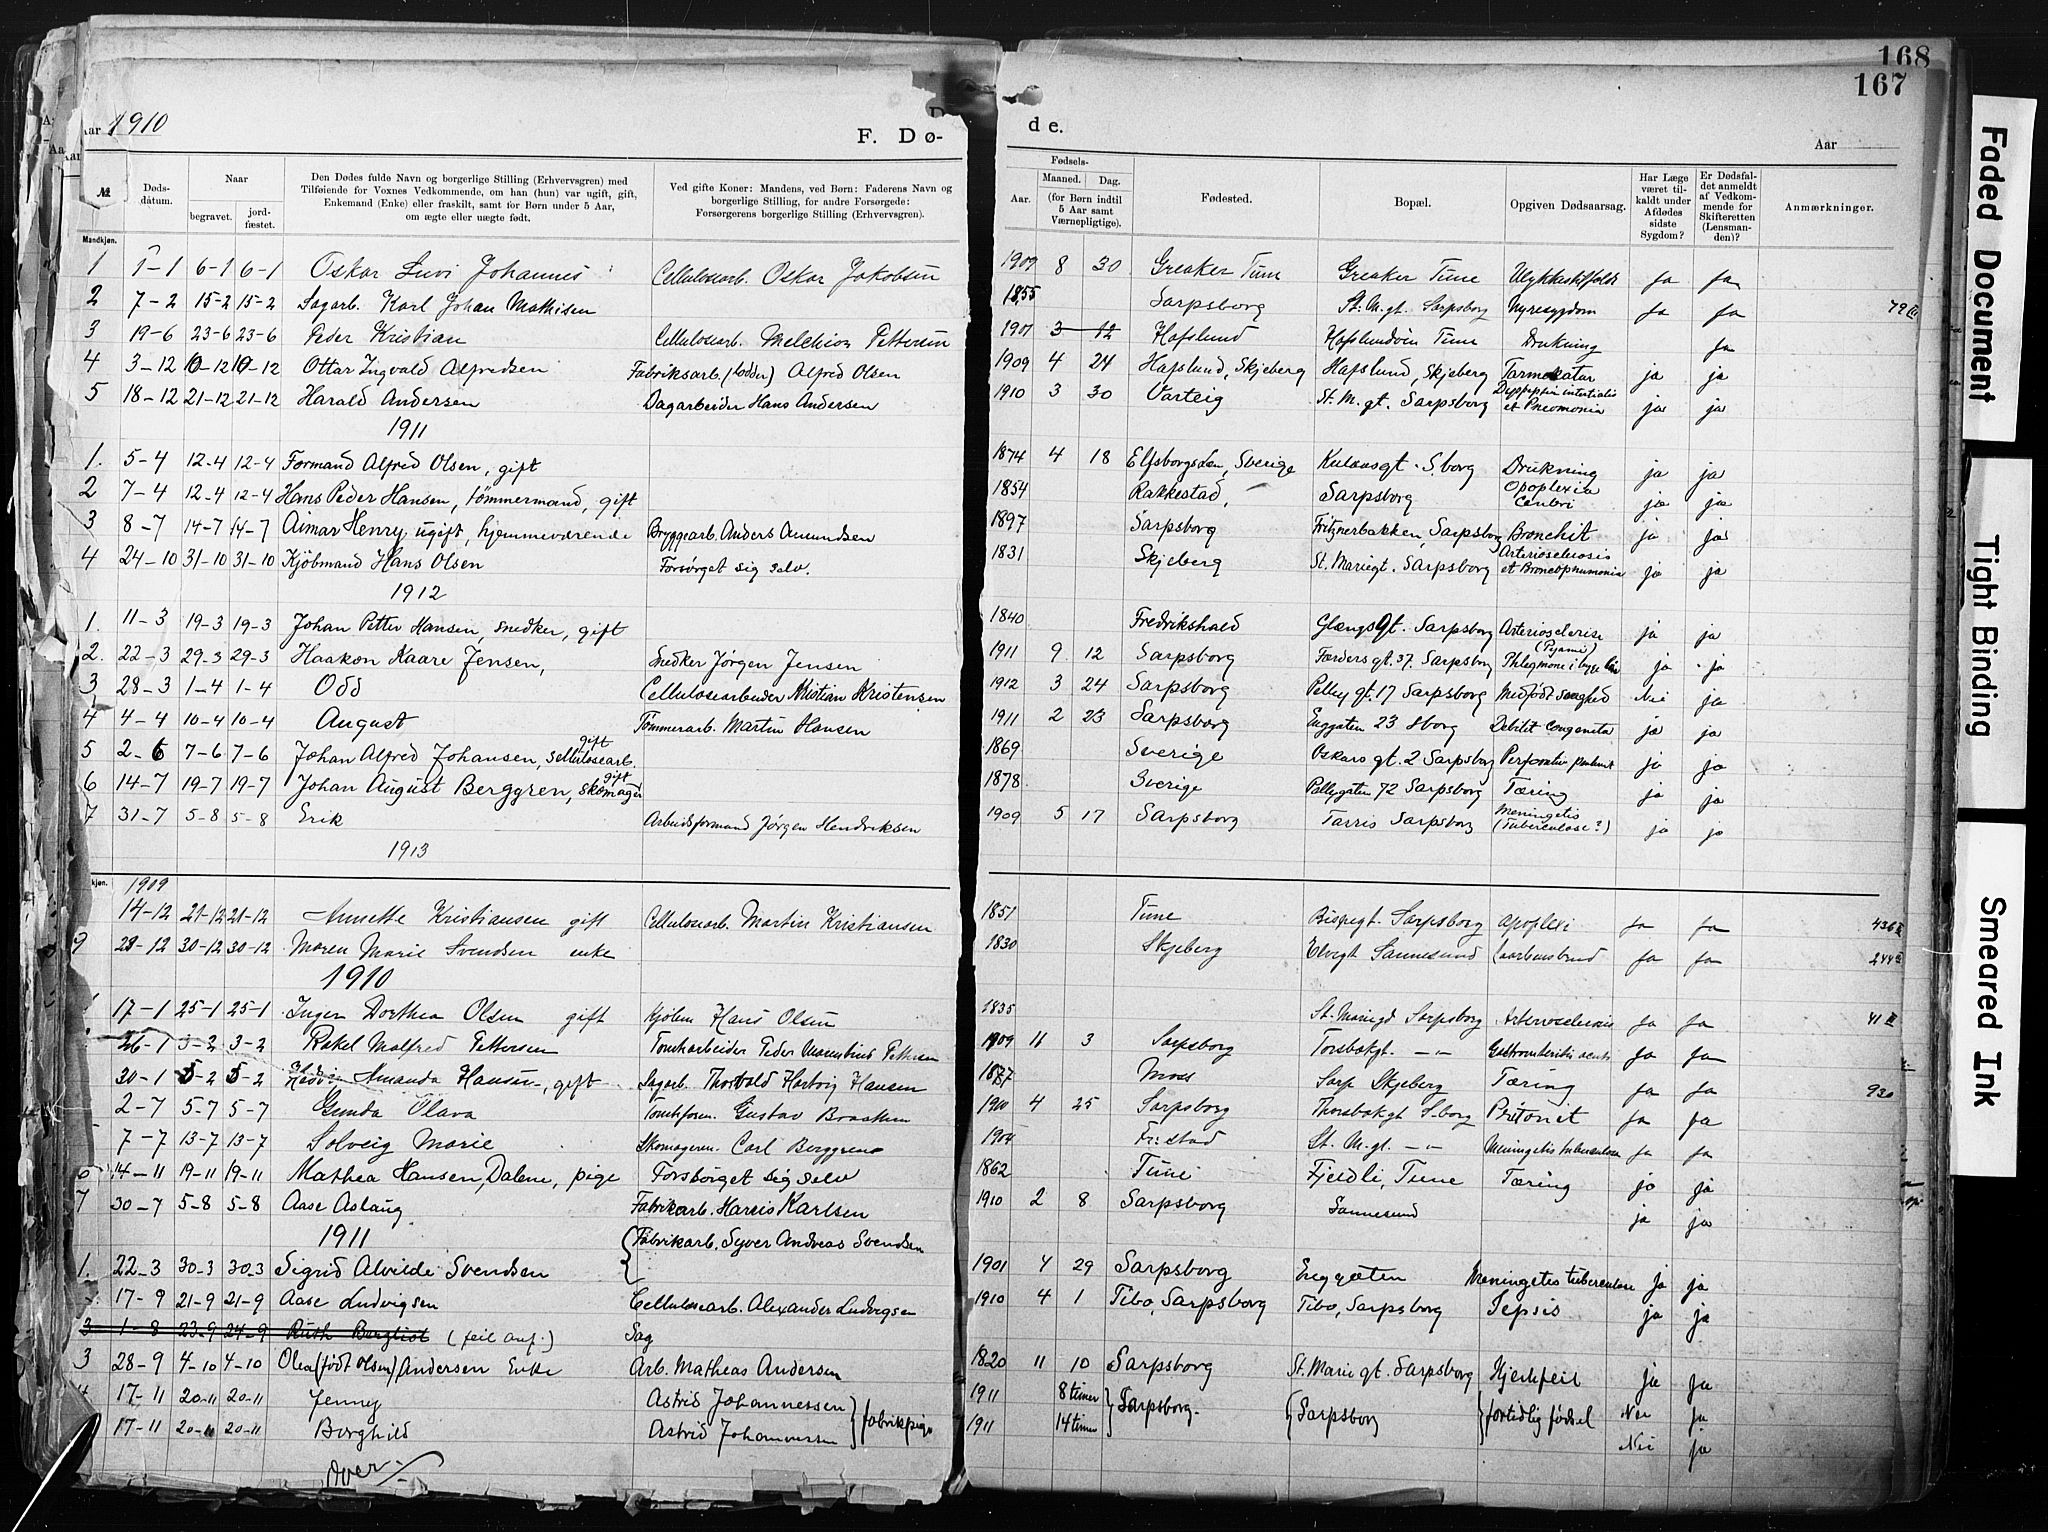 168
167
Aar 1910
F. Dø-
de.
Aar
№
Døds-dátum.
Naar
begravet.
jord-fæstet.
Den Dødes fulde Navn og borgerlige Stilling (Erhvervsgren) med Tilføiende for Voxnes Vedkommende, om han (hun) var ugift, gift, Enkemand (Enke) eller fraskilt, samt for Børn under 5 Aar, om ægte eller uægte født.
Ved gifte Koner: Mandens, ved Børn: Faderens Navn og borgerlige Stilling, for andre Forsørgede: Forsørgerens borgerlige Stilling (Erhvervsgren).
Fødsels-
Aar.
Maaned.
Dag.
(for Børn indtil 5 Aar samt Værnepligtige).
Fødested.
Bopæl.
Opgiven Dødsaarsag.
Har Læge været til-kaldt under Afdødes sidste Sygdom?
Er Dødsfal-det anmeldt af Vedkom-mende for Skifteretten (Lensman-den)?
Anmærkninger.
Mandkjøn.
1 1-1 6-1 6-1 Oskar Johannes Cellulosearb. Oskar Jakobsen 1909 8 30 Greaker Tune Greaker Tune Ulykkestilfælde ja ja
2 7-2 15-2 15-2 Sagarb. Karl Johan Mathisen 1855 Sarpsborg St. M. gt. Sarpsborg Nyresygdom ja ja
3 19-6 23-6 23-6 Peder Kristian Cellulosearb. Melchior Pettersen 1901 3 12 Hafslund Tune Drukning ja
4 3-12 10-12 10-12 Ottar Ingvald Alfredsen Fabriksarb. (Lodder) Alfred Olsen 1909 4 24 Hafslund, Skjeberg Hafslund, Skjeberg Tarmkatar ja ja
5 18-12 21-12 21-12 Harald Andersen Dagarbeider Hans Andersen 1910 3 30 Varteig St. M. gt. Sarpsborg et Pneomonia ja ja
1911
1. 5-4 12-4 12-4 Formand Alfred Olsen, gift 1874 4 18 Elfsborgs Len, Sverige Kulaasgt. S.borg Drukning ja ja
2 7-4 12-4 12-4 Hans Peder Hansen, tømmermand, gift 1854 Rakkestad, Sarpsborg Opoplexia Cerebri ja ja
3 8-7 14-7 14-7 Aimar Henry, ugift, hjemmeværende Bryggearb. Anders Amundsen 1897 Sarpsborg Fritznerbakken, Sarpsborg Bronchit ja ja
4 24-10 31-10 31-10 Kjøbmand Hans Olsen Forsørget sig selv. 1831 Skjeberg St. Mariegt. Sarpsborg Arteriosclerosis et Broncopnumonia ja ja
1912
1. 11-3 19-3 19-3 Johan Petter Hansen, snedker, gift 1840 Fredrikshald Glengsgt. Sarpsborg Arteriosclerose ja ja
2. 22-3 29-3 29-3 Haakon Kaare Jensen, Snedker Jørgen Jensen 1911 9 12 Sarpsborg Færders gt. 37. Sarpsborg Phlegmone i (Pyæmi) ja ja
3 28-3 1-4 1-4 Odd Cellulosearbeider Kristian Kristensen 1912 3 24 Sarpsborg Pellygt. 17 Sarpsborg Medfødt svaghed Nei ja
4 4-4 10-4 10-4 August Tømmerarb. Martin Hansen 1911 2 23 Sarpsborg Enggaten 23 Sborg Debilit. Congenita ja ja
5 2-6 7-6 7-6 Johan Alfred Johansen, sellulosearb. gift 1869 Sverige Oskars gt. 2 Sarpsborg ja ja
6 14-7 19-7 19-7 Johan August Berggren, skomager gift 1878 Sverige Pellygaten 72 Sarpsborg Tæring ja ja
7 31-7 5-8 5-8 Erik Arbeidsformand Jørgen Hendriksen 1909 5 17 Sarpsborg Tarris Sarpsborg Meningetis (Tuberculose?) ja ja
1913
kjøn.
1909
14-12 21-12 21-12 Annette Kristiansen gift Cellulosearb. Martin Kristiansen 1851 Tune Bispegt. Sarpsborg apoplexi ja ja
9 28-12 30-12 30-12 Maren Marie Svendsen enke 1830 Skjeberg Elvegt Sannesund ja ja
1910
17-1 25-1 25-1 Inger Dorthea Olsen gift Kjøbm Hans Olsen 1835 St. Mariegd Sarpsborg Arteriosclerosis ja ja
26-1 3-2 3-2 Rakel Malfred Pettersen Tomtearbeider Peder Pettersen 1909 11 3 Sarpsborg Torsbakgt. -"- ja ja
30-1 5-2 5-2 Amanda Hansen, gift Sagarb. Thorvald Hartvig Hansen 1877 Moss Sarp Skjeberg Tæring ja ja
2-7 5-7 5-7 Gunda Olava Gustav Braathen 1910 4 25 Sarpsborg Thorsbakgt S.borg Peritonit ja ja
7-7 13-7 13-7 Solveig Marie Skomagerm. Carl Berggren 1904 Fr.stad St. M. gt. -"- Meningetis tuberculose ja ja
6 14-11 19-11 19-11 Mathea Hansen, Dalene, pige Forsørget sig selv 1862 Tune Fjeldli, Tune Tæring ja ja
7 30-7 5-8 5-8 Aase Aslaug Fabrikarb. Karlsen 1910 2 8 Sarpsborg Sannesund ja ja
1911
1. 22-3 30-3 30-3 Sigrid Alvilde Svendsen Fabrikarb. Syver Andreas Svendsen 1901 4 29 Sarpsborg Enggaten Meningetis tuberculose ja ja
17-9 21-9 21-9 Aase Ludvigsen Cellulosearb. Alexander Ludvigsen 1910 4 1 Tibo, Sarpsborg Tibo, Sarpsborg Sepsis ja ja
3 1-8 23-9 24-9 Ruth Bergliot (feil anf.) Sag
3 28-9 4-10 4-10 Olea (født Olsen) Andersen Enke Arb. Matheas Andersen 1820 11 10 Sarpsborg St. Marie gt. Sarpsborg Hjertefeil ja ja
17-11 20-11 20-11 Jenny Astrid Johannessen 1911 8 timer Nei ja
17-11 20-11 20-11 Borghild Astrid Johannessen } fabrikpige 1911 14 timer } Sarpsborg. { Sarpsborg } fortidlig fødsel Nei ja
Over
Faded Document
Tight Binding
Smeared Ink